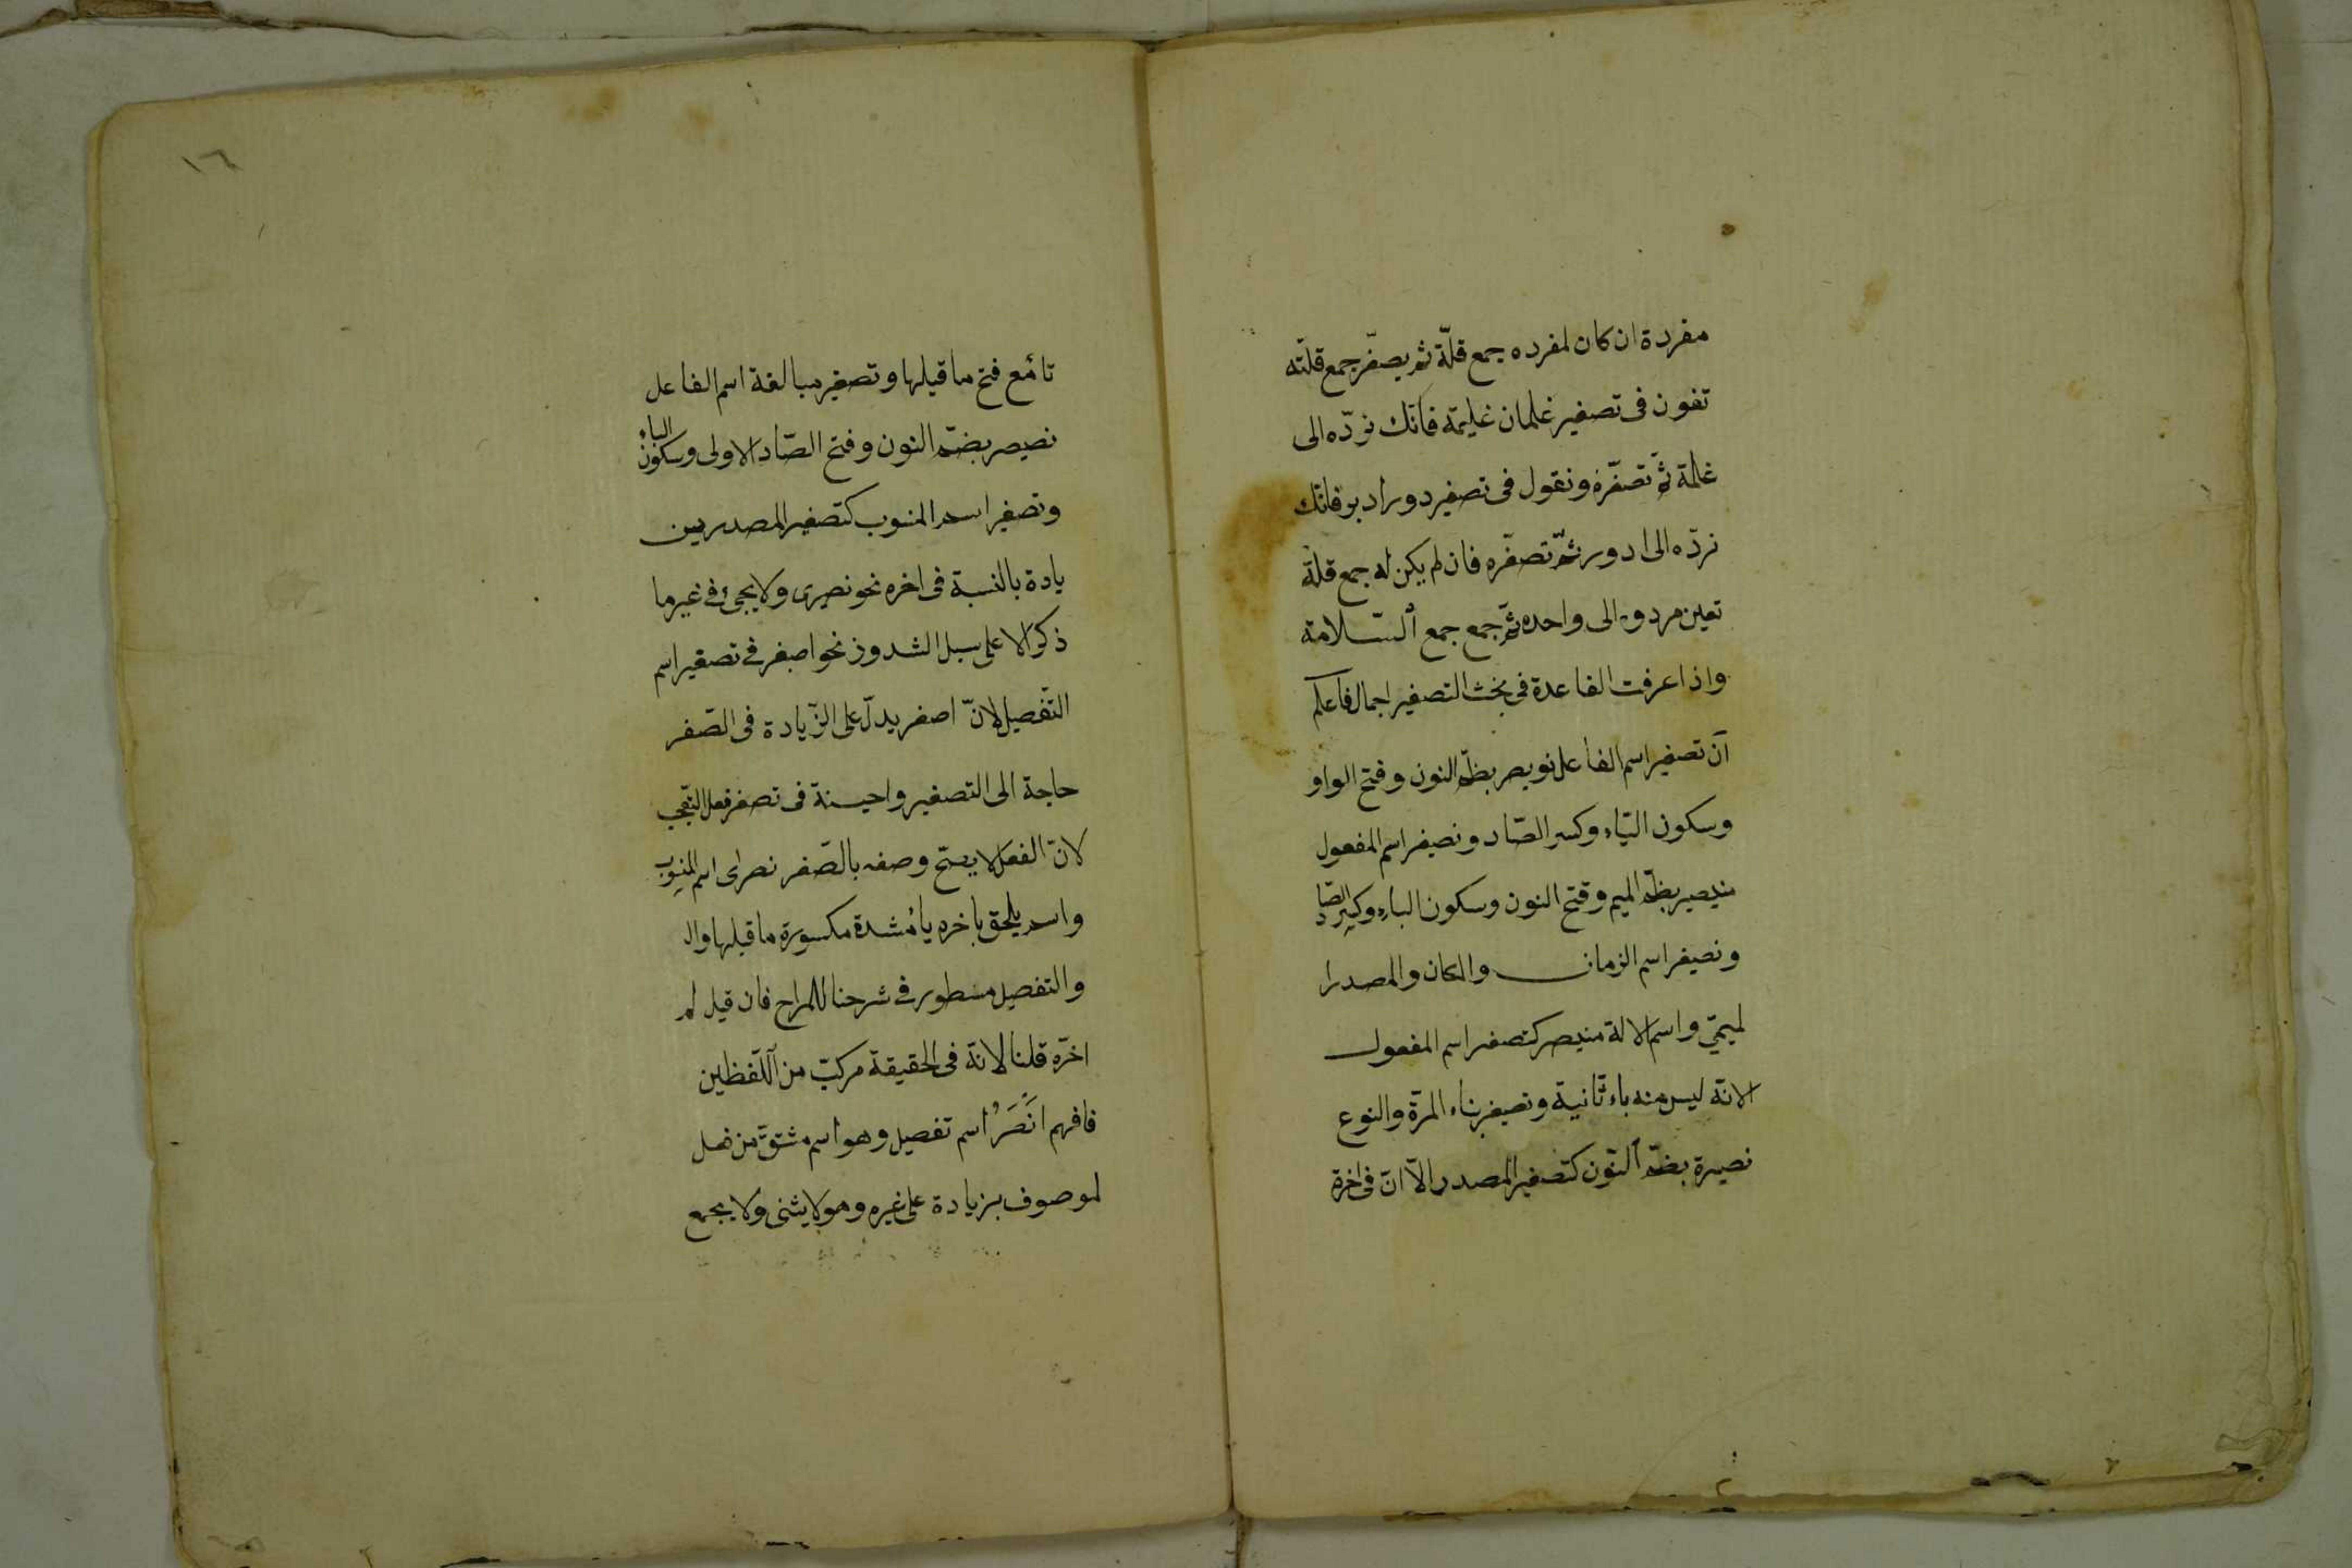 مفردة ان كان لمفرده جمع قلّة ثم يصغّر جمع قلّته
تفون فى تصغير غلمان غليمة فانّك نردّه الى
غلمة ثمّ تصغّره ونقول فى تصغير دور ادير فانّك
نردّه الى ادور ثمّ تصغّره فان لم يكن له جمع قلّة
تعين مردوه الى واحده ثمّ جمع جمع السّلامة
واذا عرفت القاعدة فى بحث التصغير اجمالا فاعلم
انّ تصغير اسم الفاعل نويصر بظمّ النون وفتح الواو
وسكون اليّاء وكسر الصّاد ونصيغر اسم المفعول
منيصير بظمّ الميم وفتح النون وسكون الياء وكسر الصّاد
ونصيغر اسم الزمان والمكان والمصدرا
لميميّ واسم الالة منيصر كتصغير اسم المفعول
الانّه ليس منه ياء ثانية ونصيغر بناء المرّة والنوع
نصيرة بضمّ النّون كتصغير المصدر الّا انّ فى اخرة
١٦
تاءً مع فتح ما قبلها وتصغير مبالغة اسم الفاعل
نصيصر بضمّ النون وفتح الصّاد الاولى وسكون الياء
وتصغير اسم المنسوب كتصغير المصدر بين
يادة بالنسبة فى اخره نحو نصيرى ولا يجئ فى غير ما
ذكر الا على سبل الشدوذ نحو اصيغر فى تصغير اسم
التّفصيل لانّ اصغر يدلّ على الزّيادة فى الصّغر
حاجة الى التصغير واحيسنة فى تصغر فعل التّعجب
لانّ الفعل لا يصحّ وصفه بالصّغر نصرى اسم المنسوب
واسم يلحق باخره ياءُ مشدة مكسورة ما قبلها وال
والتفصيل مسطور فى شرحنا للمراح فان قيل لم
اخّره قلنا لانّه فى الحقيقة مركبّ من اللّفظين
فافهم انْصَرُ اسم تفصيل وهو اسم مشتقّ من فعل
لموصوف بزيادة على غيره وهو لا يثنى ولا يجمع